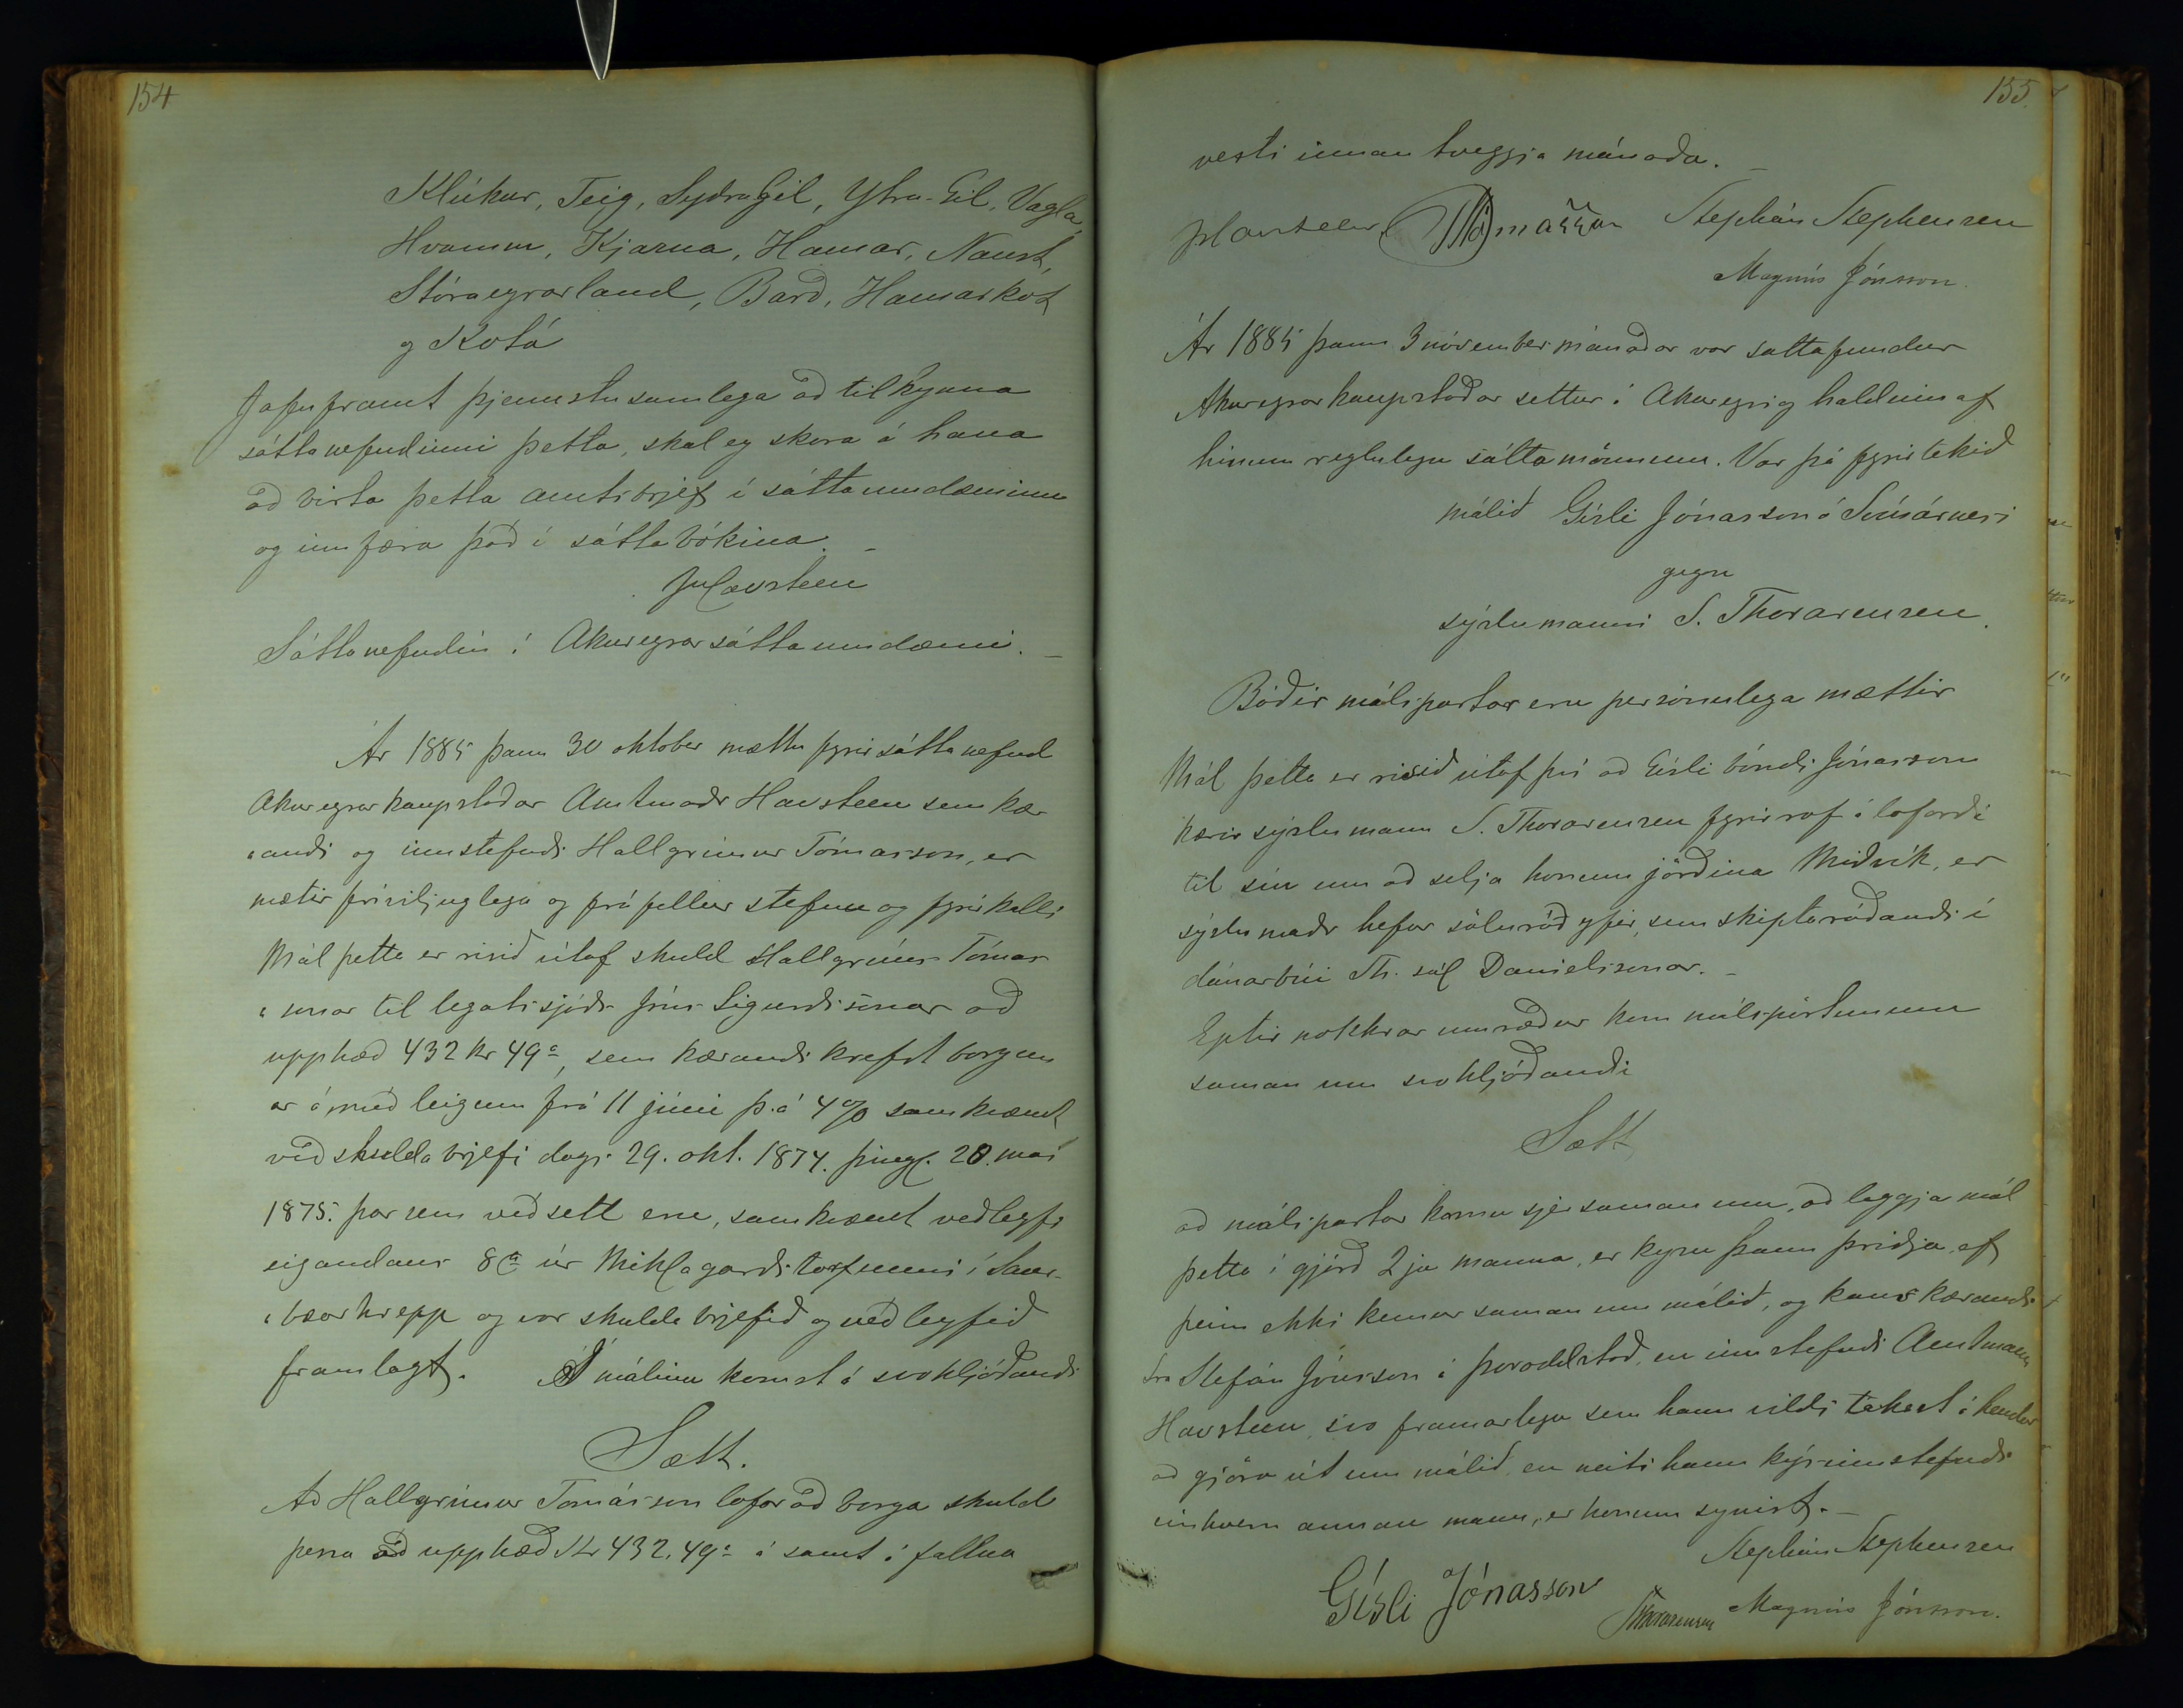 154
Klúkur, Teig, Syðragil, Ytra-Gil, Vagla,
Hvamm, Kjarna, Hamar, Naust,
Stóraeyrarland, Barð, Hamarkot
og Kotá
Jafnframt þjenustusamlega að tilkynna
sáttanefndinni þetta, skal eg skora á hana
að birta þetta amtsbrjef í sáttaumdæminu
og innfæra það í sáttabókina. –
JHavsteen
Sáttanefndin í Akureyrarsáttaumdæmi. –
Ár 1885 þann 30 oktober mættu fyrir sáttanefnd
Akureyrarkaupstaðar Amtmaðr Havsteen sem kær
"andi og innstefndi Hallgrímur Tómasson, er
mætir fríviljuglega og fráfellur stefnu og fyrirkalli
Mál þetta er risið útaf skuld Hallgríms Tómas
"sonar til legatssjóðs Jóns Sigurðssonar að
upphæð 432 kr 49a, sem kærandi krefst borgun
ar á með leigum frá 11 júní þ.á 4% samkvæmt
við skuldabrjefi dags. 29. okt. 1874. þingl. 20. maí
1875. þar sem veðsett eru, samkvæmt veðleyfi
eigandans 8 úr Miklagarðstorfunni í Saur-
"bæarhrepp og var skuldabrjefið og veðleyfið
framlagt. Í málinu komst á svohljóðandi
Sætt.
Að Hallgrímur Tómásson lofar að borga skuld
þessa að upphæð Kr 432.49a á samt áfallna
155.
vexti innan tveggja mánaða. –
JHavsteen HTómasson Stephán Stephensen
Magnús Jónsson.
Ár 1885 þann 3 nóvember mánaðar var sáttafundur
Akureyrarkaupstaðar settur í Akureyri og haldinn af
hinum reglulegu sáttamönnum. Var þá fyrirtekið
málið Gísli Jónasson á Svínárnesi
gegn
sýslumanni S. Thorarensen.
Báðir málspartar eru persónulega mættir
Mál þetta er risið útaf því að Gísli bóndi Jónasson
kærir sýslumann S. Thorarensen fyrir rof á loforði
til sín um að selja honum jörðina Miðvík, er
sýslumaðr hefur söluráð yfir, sem skiptaráðandi í
dánarbúi Th. sál Danielssonar. –
Eptir nokkrar umræður kom málspörtunum
saman um svohljóðandi
Sætt
að málspartar komu sjer saman um, að leggja mál
þetta í gjörð 2ja manna, er kjósi þann þriðja, ef
þeim ekki kemur saman um málið, og kaus kærandi
Sra Stefán Jónsson á Þóroddstað, en innstefndi Amtmann
Havsteen, svo framarlega sem hann vildi takast á hendur
að gjöra út um málið, en neiti hann kýs innstefndi
einhvern annan mann, er honum synist. –
Stephán Stephensen
Gísli Jónasson SThorarensen Magnús Jónsson.